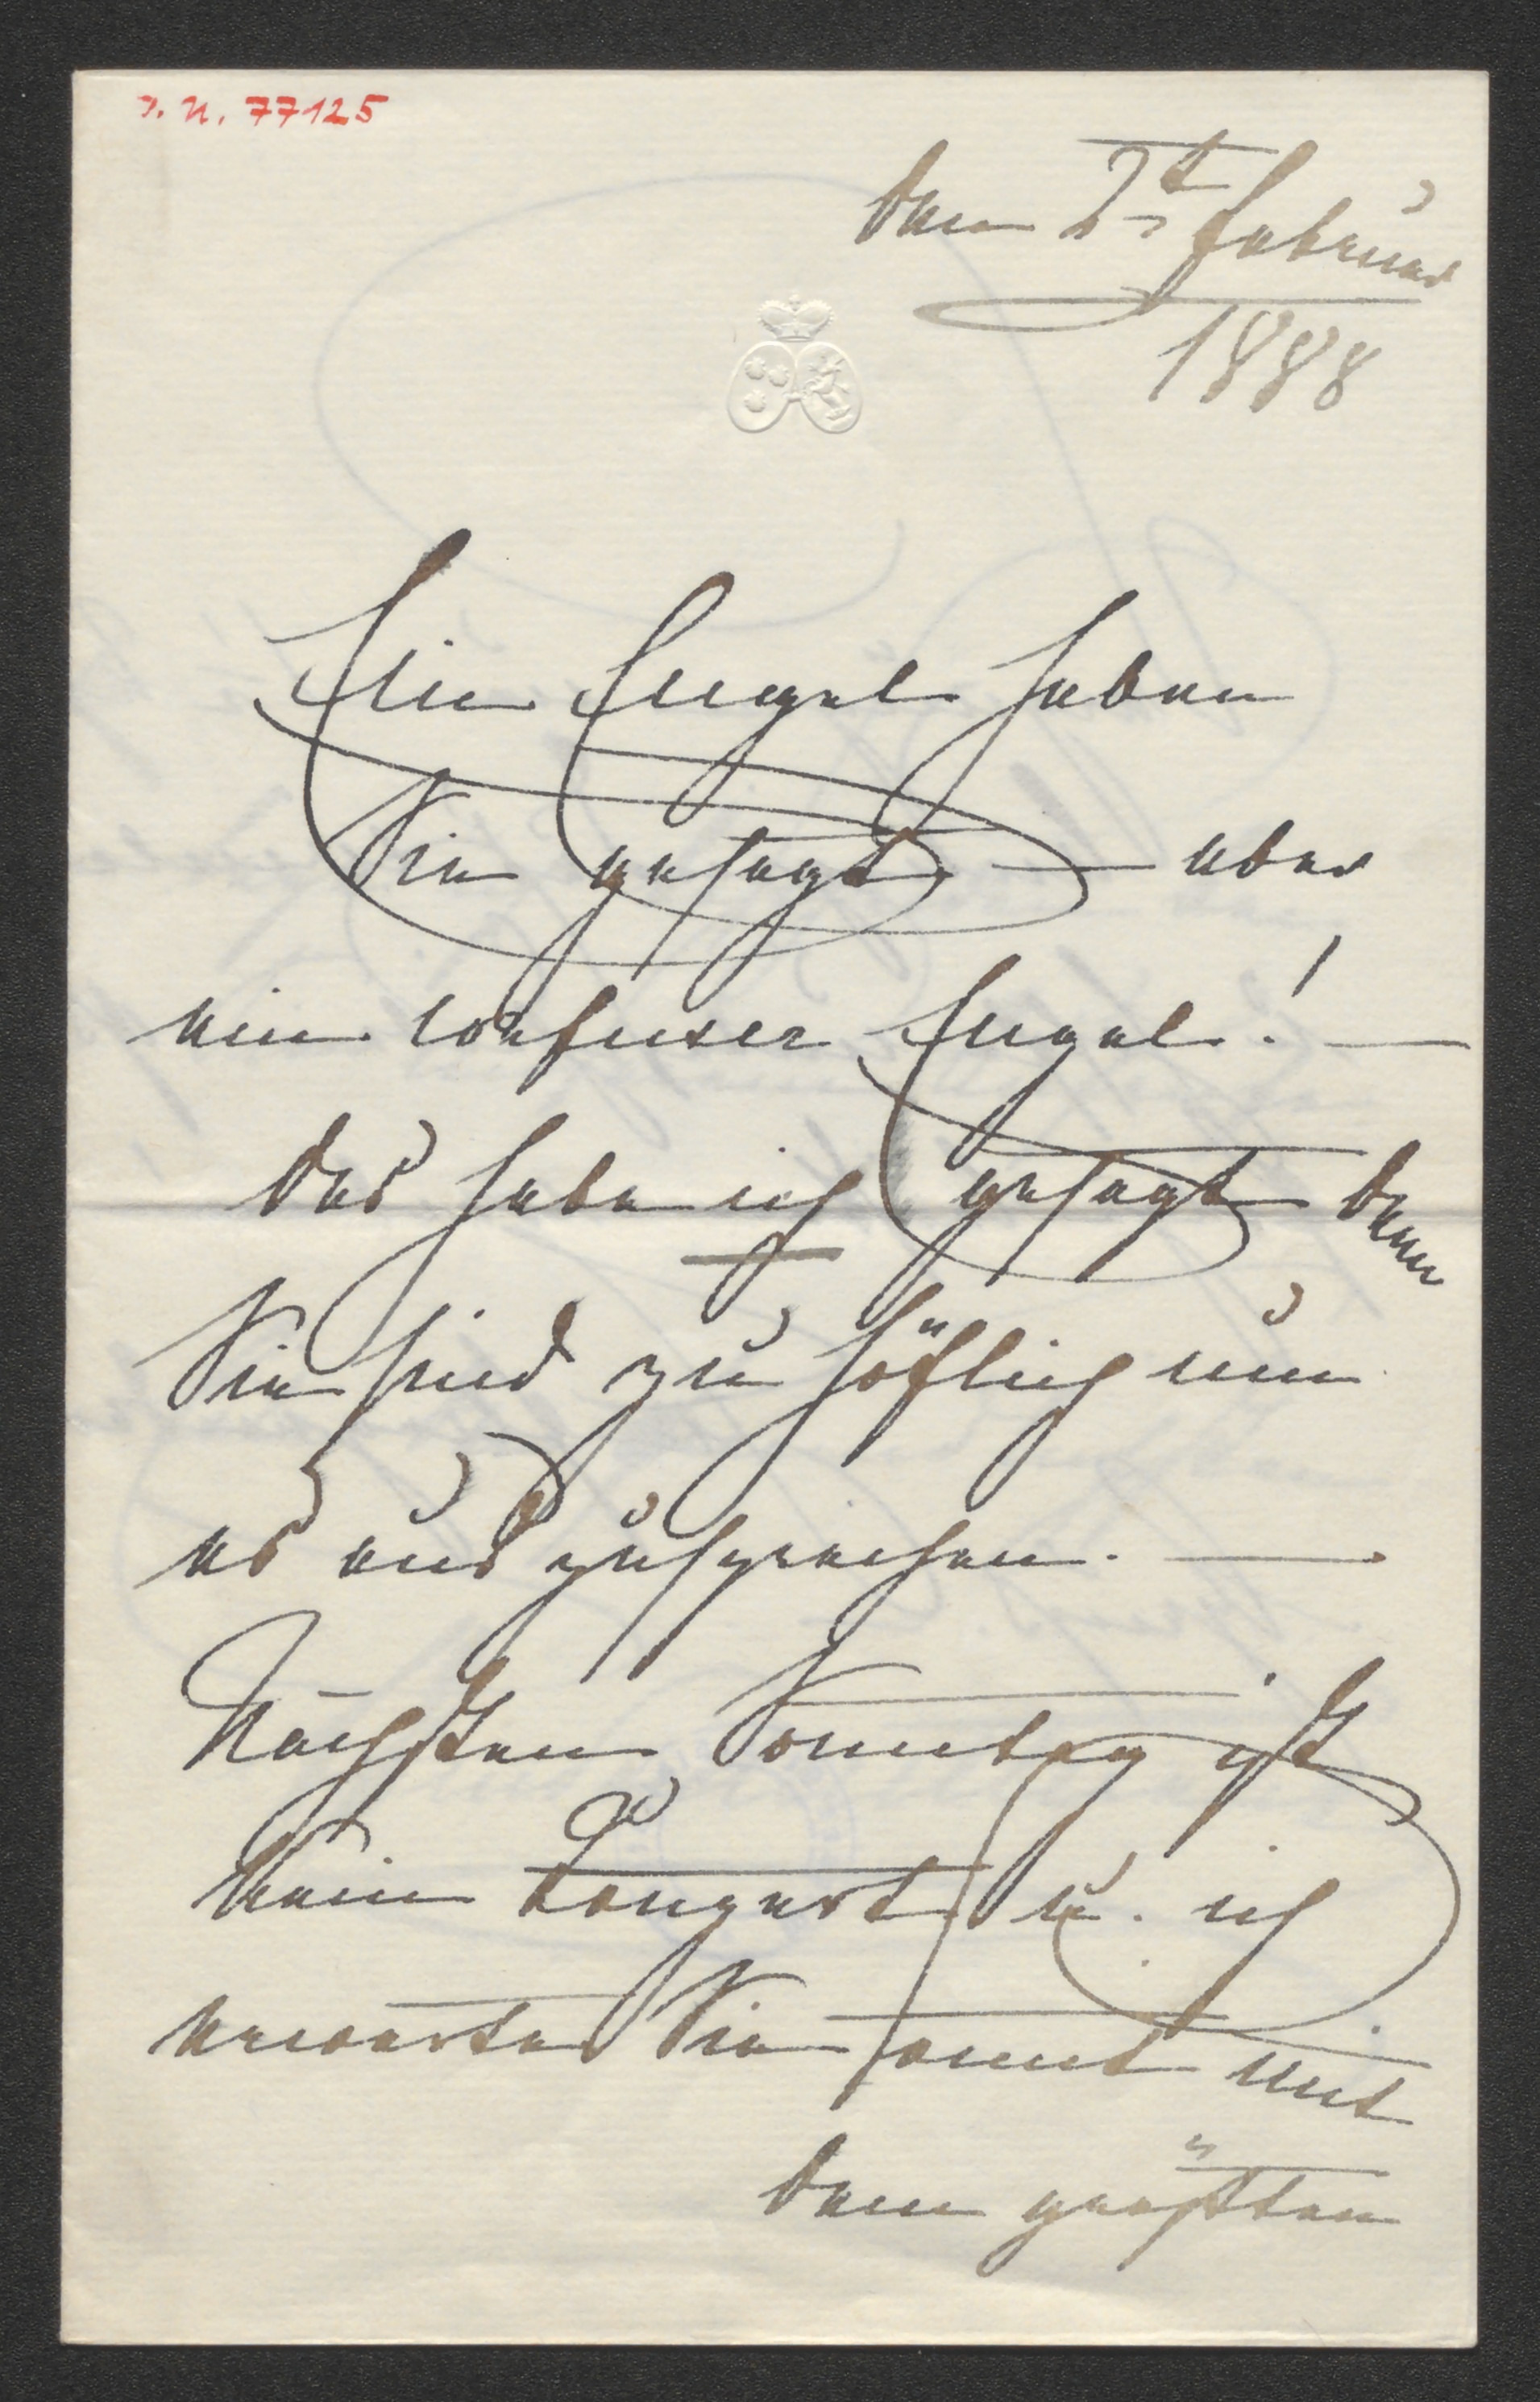 I. N. 77125
den 2t Februar
1888
Ein Engel haben
Sie gesagt, — aber
ein confuser Engel! —
das habe ich gesagt denn
Sie sind zu höflich um
es auszusprechen. —
Nächsten Sonntag ist
kein Conzert u. ich
erwarte Sie somit mit
dem größten